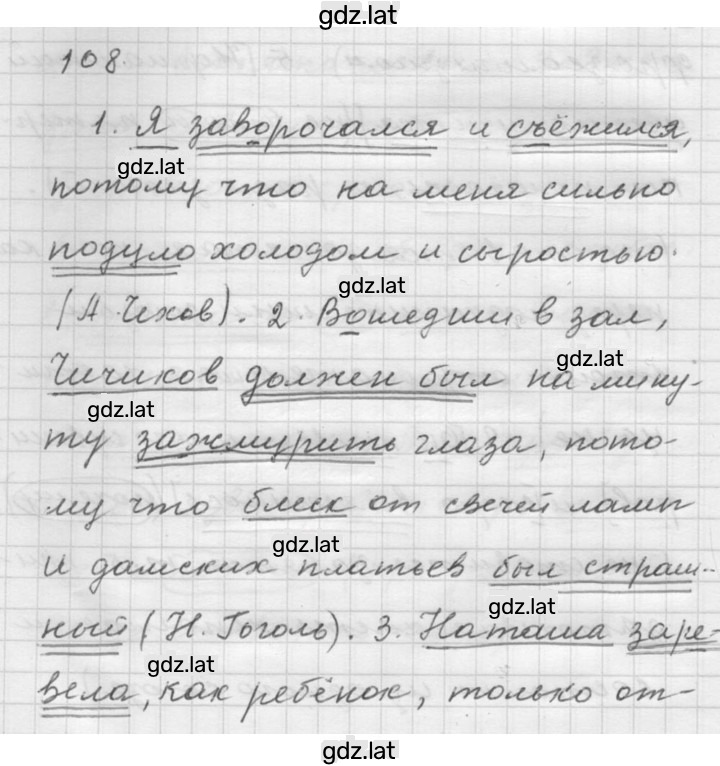 gdz.lat
108.
1. Я заворочался и съёжился,
gdz.lat
потому что на меня сильно
подуло холодом и сыростью.
gdz.lat
(А. Чехов). 2. Вошедши в зал,
gdz.lat
Чичиков должен был на мину-
gdz.lat
ту зажмурить глаза, пото-
му что блеск от свечей ламп
gdz.lat
и дамских платьев был страш-
gdz.lat
ный (Н. Гоголь). 3. Наташа заре-
gdz.lat
вела, как ребёнок, только от-
gdz.lat